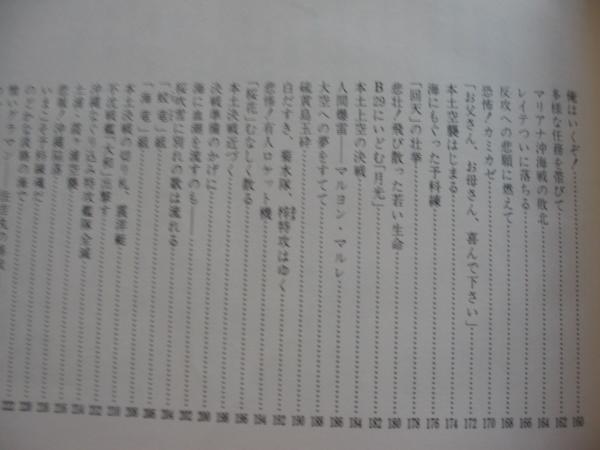 俺はいくぞ!……160
多様な任務を帯びて……162
マリアナ沖海戦の敗北……164
レイテついに落ちる……166
反攻への悲願に燃えて……168
恐怖!カミカゼ……170
「お父さん、お母さん、喜んで下さい」……172
本土空襲はじまる……174
海にもぐった予科練……176
「回天」の壮挙……178
悲壮!飛び散った若い生命……180
B29にいどむ「月光」……182
本土上空の決戦……184
人間爆雷――マルヨン・マルレ……186
大空への夢をすてて……188
硫黄島玉砕……190
白だすき、菊水隊、梓特攻はゆく……192
悲怖!有人ロケット機……194
「桜花」むなしく散る……196
本土決戦近づく……198
決戦準備のかげに……198
海に血潮を流すのも――……200
桜吹雪に別れの歌は流れる……202
「蛟竜」級……204
「海竜」級……206
本土決戦の切り札、震洋艇……208
不沈戦艦「大和」出撃す……210
沖縄なぐり込み特攻艦隊全滅……212
土浦・霞ヶ浦空襲……214
悲報!沖縄陥落……216
いまこそ予科練魂に……218
のどかな淡路の海で……220